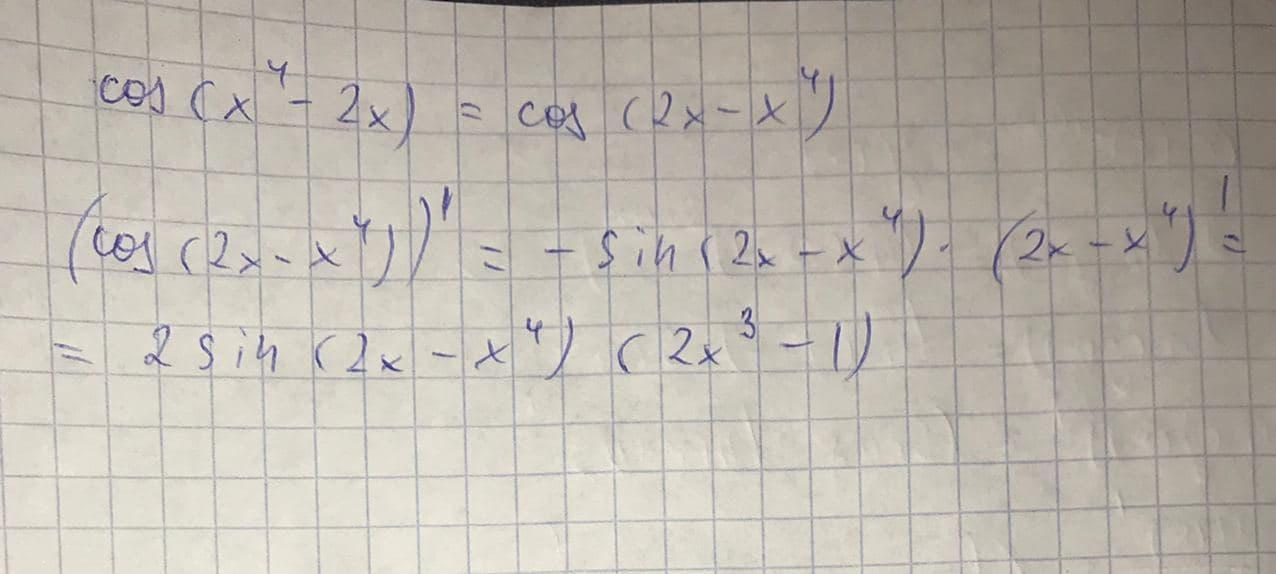 cos (x⁴ - 2x) = cos (2x - x⁴)
(cos (2x - x⁴))' = - sin (2x - x⁴) · (2x - x⁴)' =
= 2 sin (2x - x⁴) (2x³ - 1)